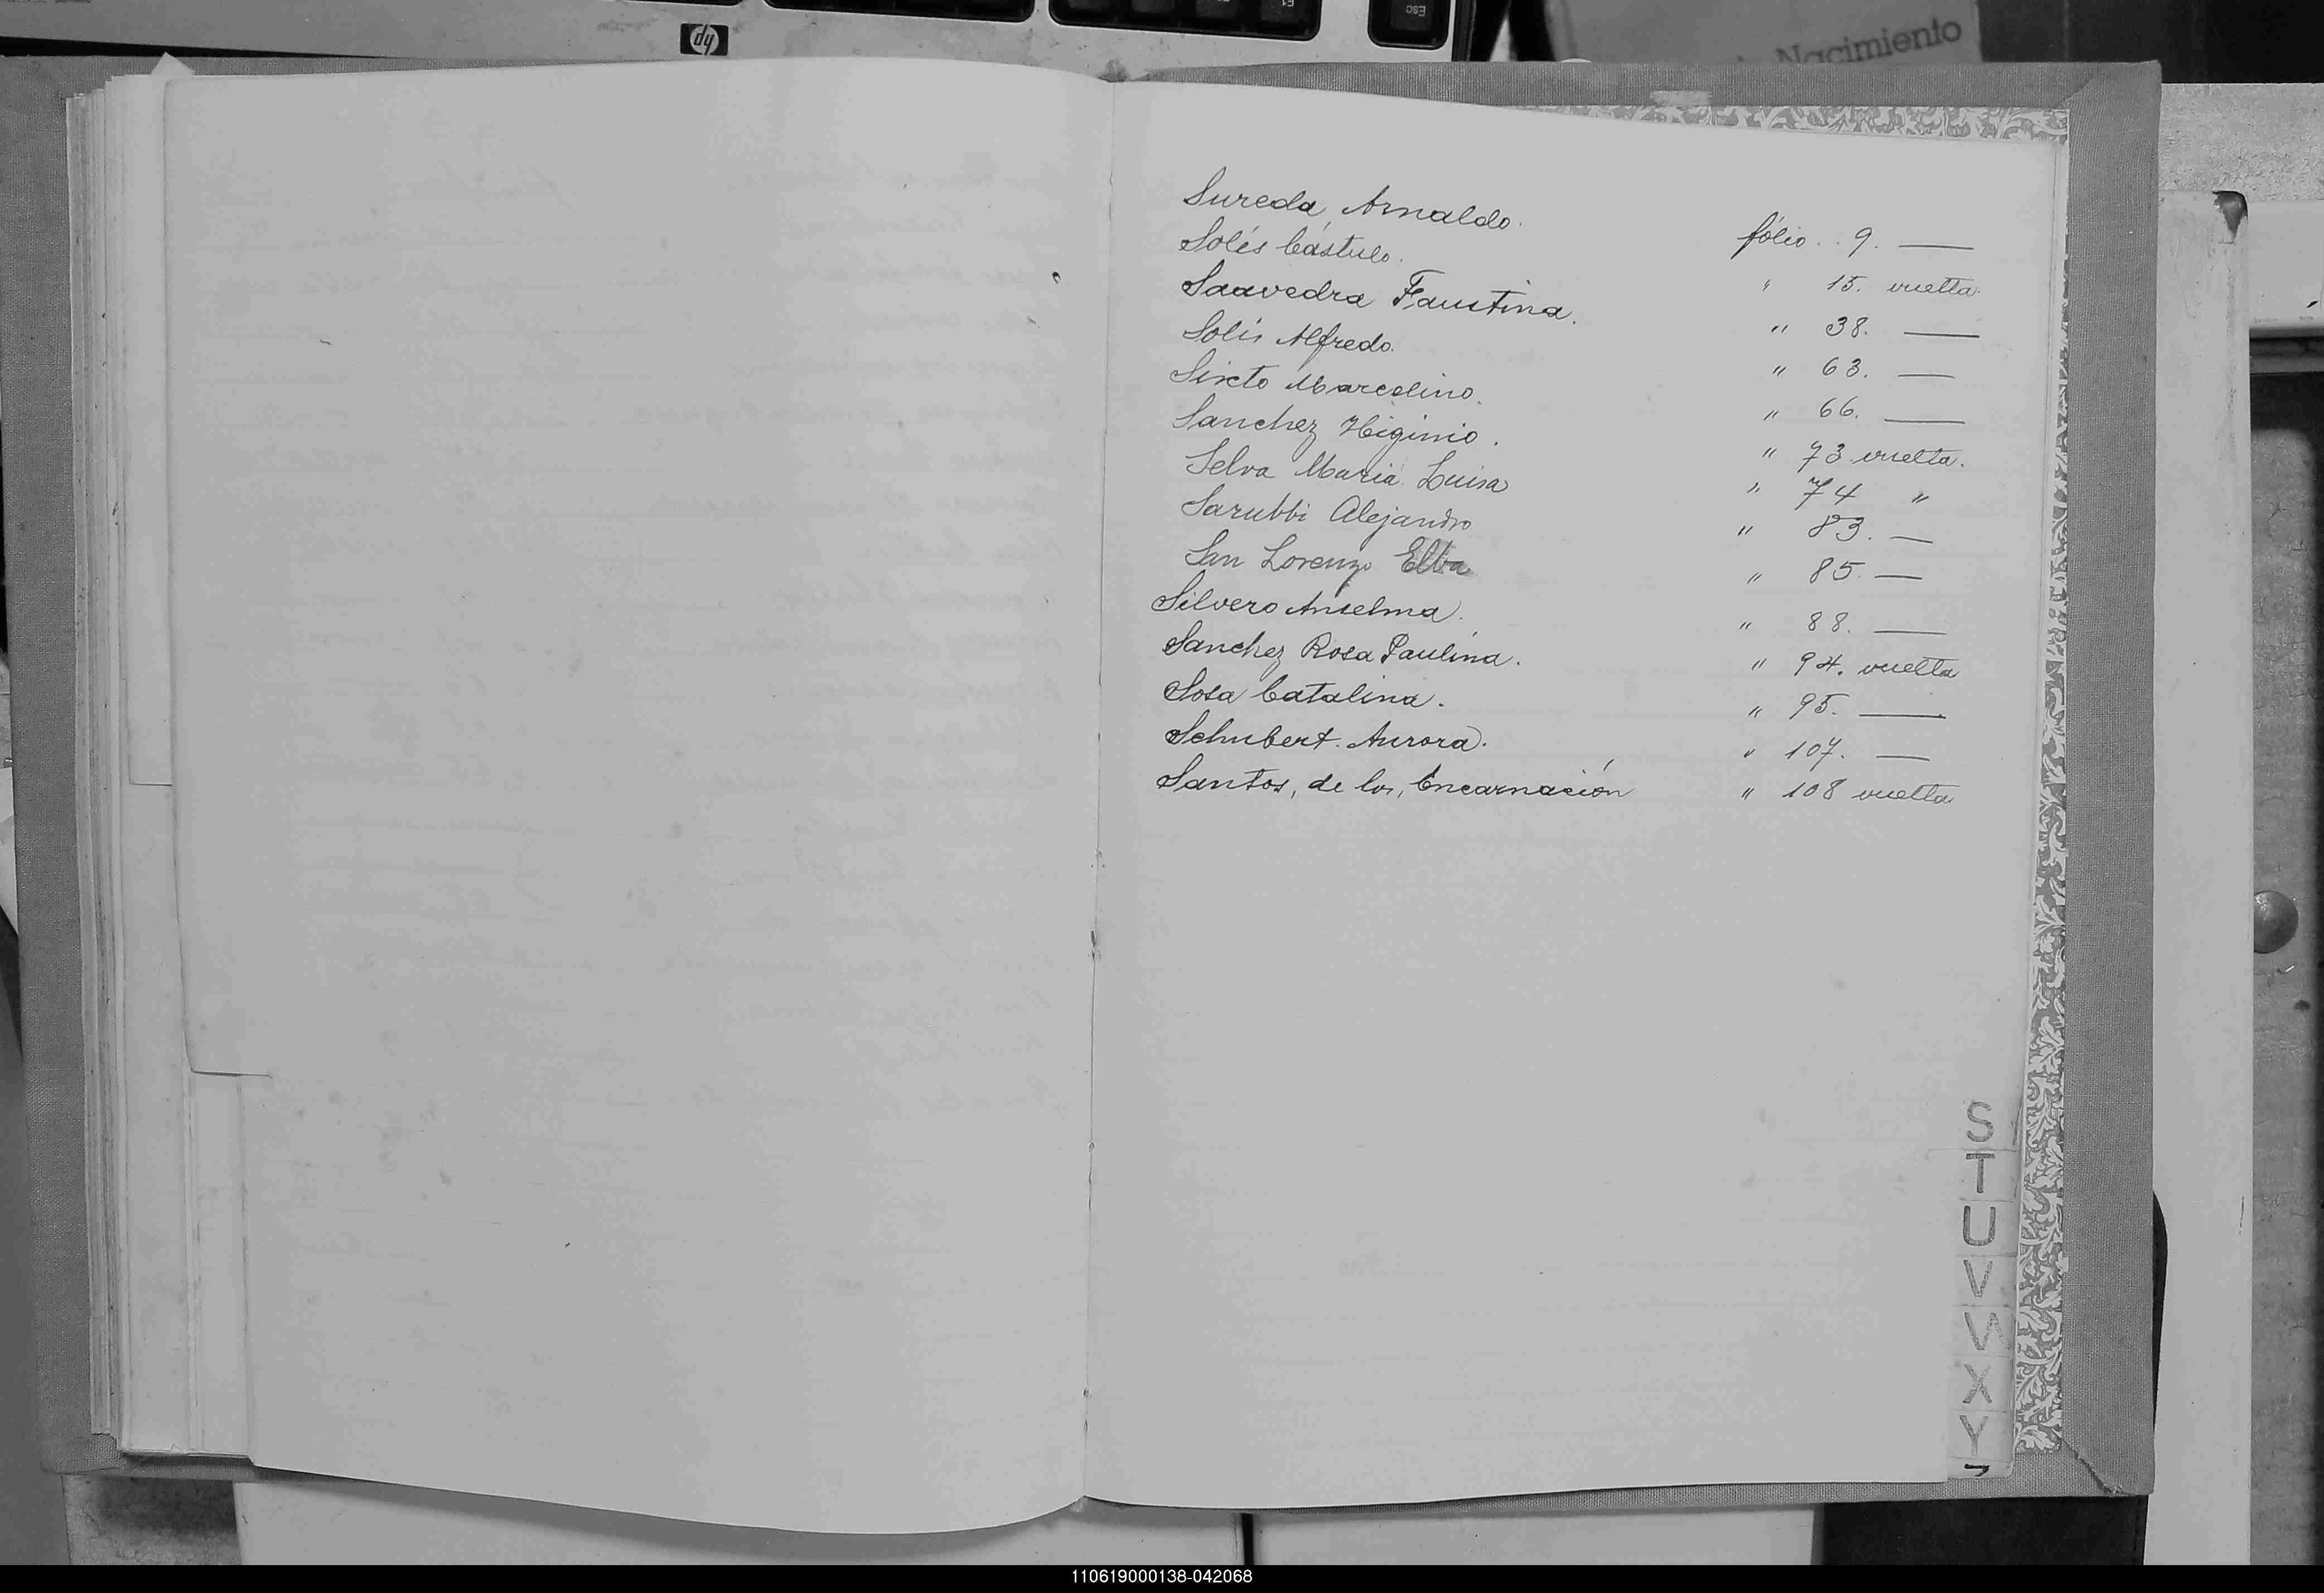 ESC
hp
Nacimiento
Sureda Arnaldo. folio.. 9. —
Solis Cástulo. " 15. vuelta.
Saavedra Faustina. " 38. —
Solis Alfredo. " 63. —
Sixto Marcelino. " 66. —
Sanchez Higinio. " 73 vuelta.
Selva Maria Luisa " 74 "
Sarubbi Alejandro " 83. —
San Lorenzo Elba " 85. —
Silvero Anselma. " 88. —
Sanchez Rosa Paulina. " 94. vuelta
Sosa Catalina. " 95. —
Schubert. Aurora. " 107. —
Santos, de los, Encarnación " 108 vuelta
S
T
U
V
W
X
Y
110619000138-042068